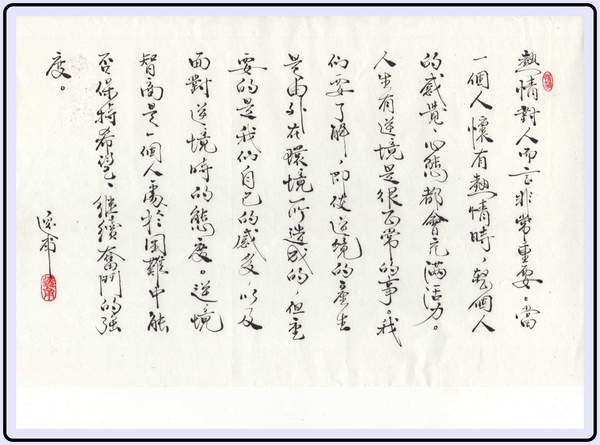 熱情對人而言非常重要。當
一個人懷有熱情時，整個人
的感覺、心態都會充滿活力。
人生有逆境是很正常的事。我
們要了解，即使逆境的產生
是由外在環境所造成的，但重
要的是我們自己的感受，以及
面對逆境時的態度。逆境
智商是一個人處於困難中能
否保持希望、繼續奮鬥的強
度。